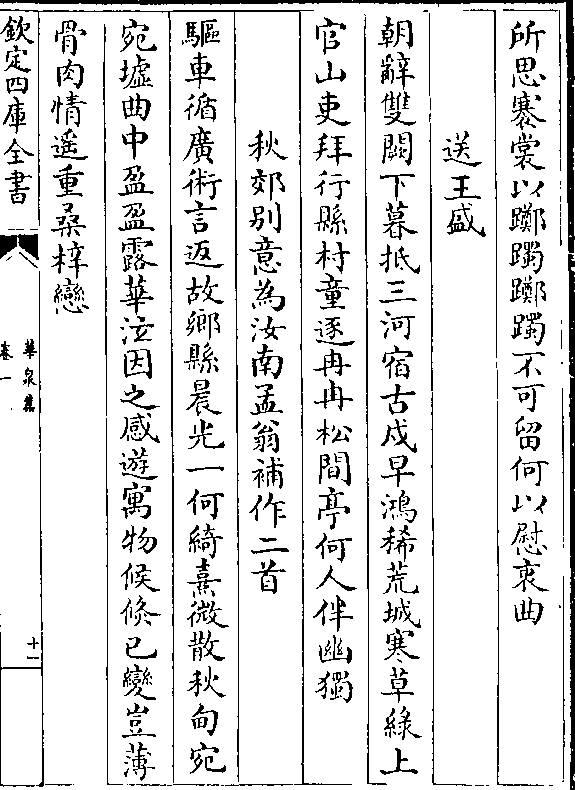 所思褰裳以躑躅躑躅不可留何以慰衷曲
送王盛
朝辭雙闕下暮抵三河宿古戍早鴻稀荒城寒草綠上
官山吏拜行縣村童逐冉冉松間亭何人伴幽獨
秋郊别意為汝南孟翁補作二首
驅車循廣術言返故鄉縣晨光一何綺熹微散秋甸宛
宛墟曲中盈盈露華泫因之感遊寓物候倏已變豈薄
骨肉情遥重桑梓戀
欽定四庫全書
華泉集
卷一
十一